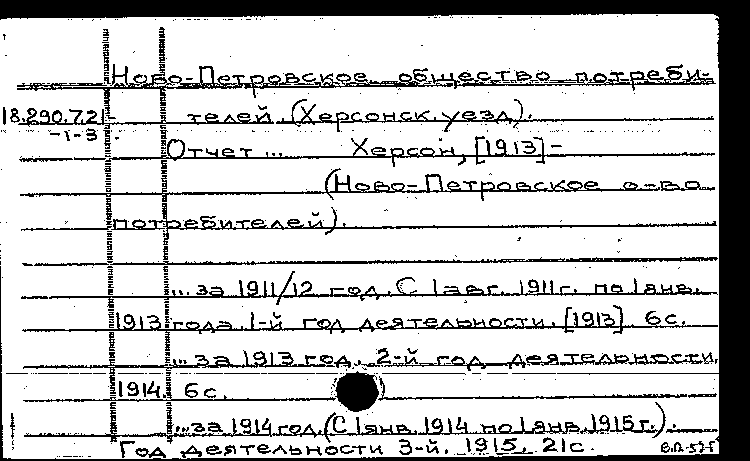 Ново-Петровское общество потреби-
18.290.7.21- телей. (Херсонск. уезд).
-1-3
Отчет ... Херсон, [1913]-
(Ново-Петровское о-во
потребителей).
...за 1911/12 год. С 1 авг. 1911 г. по 1 янв.
1913 года. 1-й год деятельности. [1913]. 6 с.
...за 1913 год. 2-й год деятельности.
1914. 6 с.
...за 1914 год. (С 1 янв. 1914 по 1 янв. 1915 г.).
Год деятельности 3-й. 1915. 21 с.